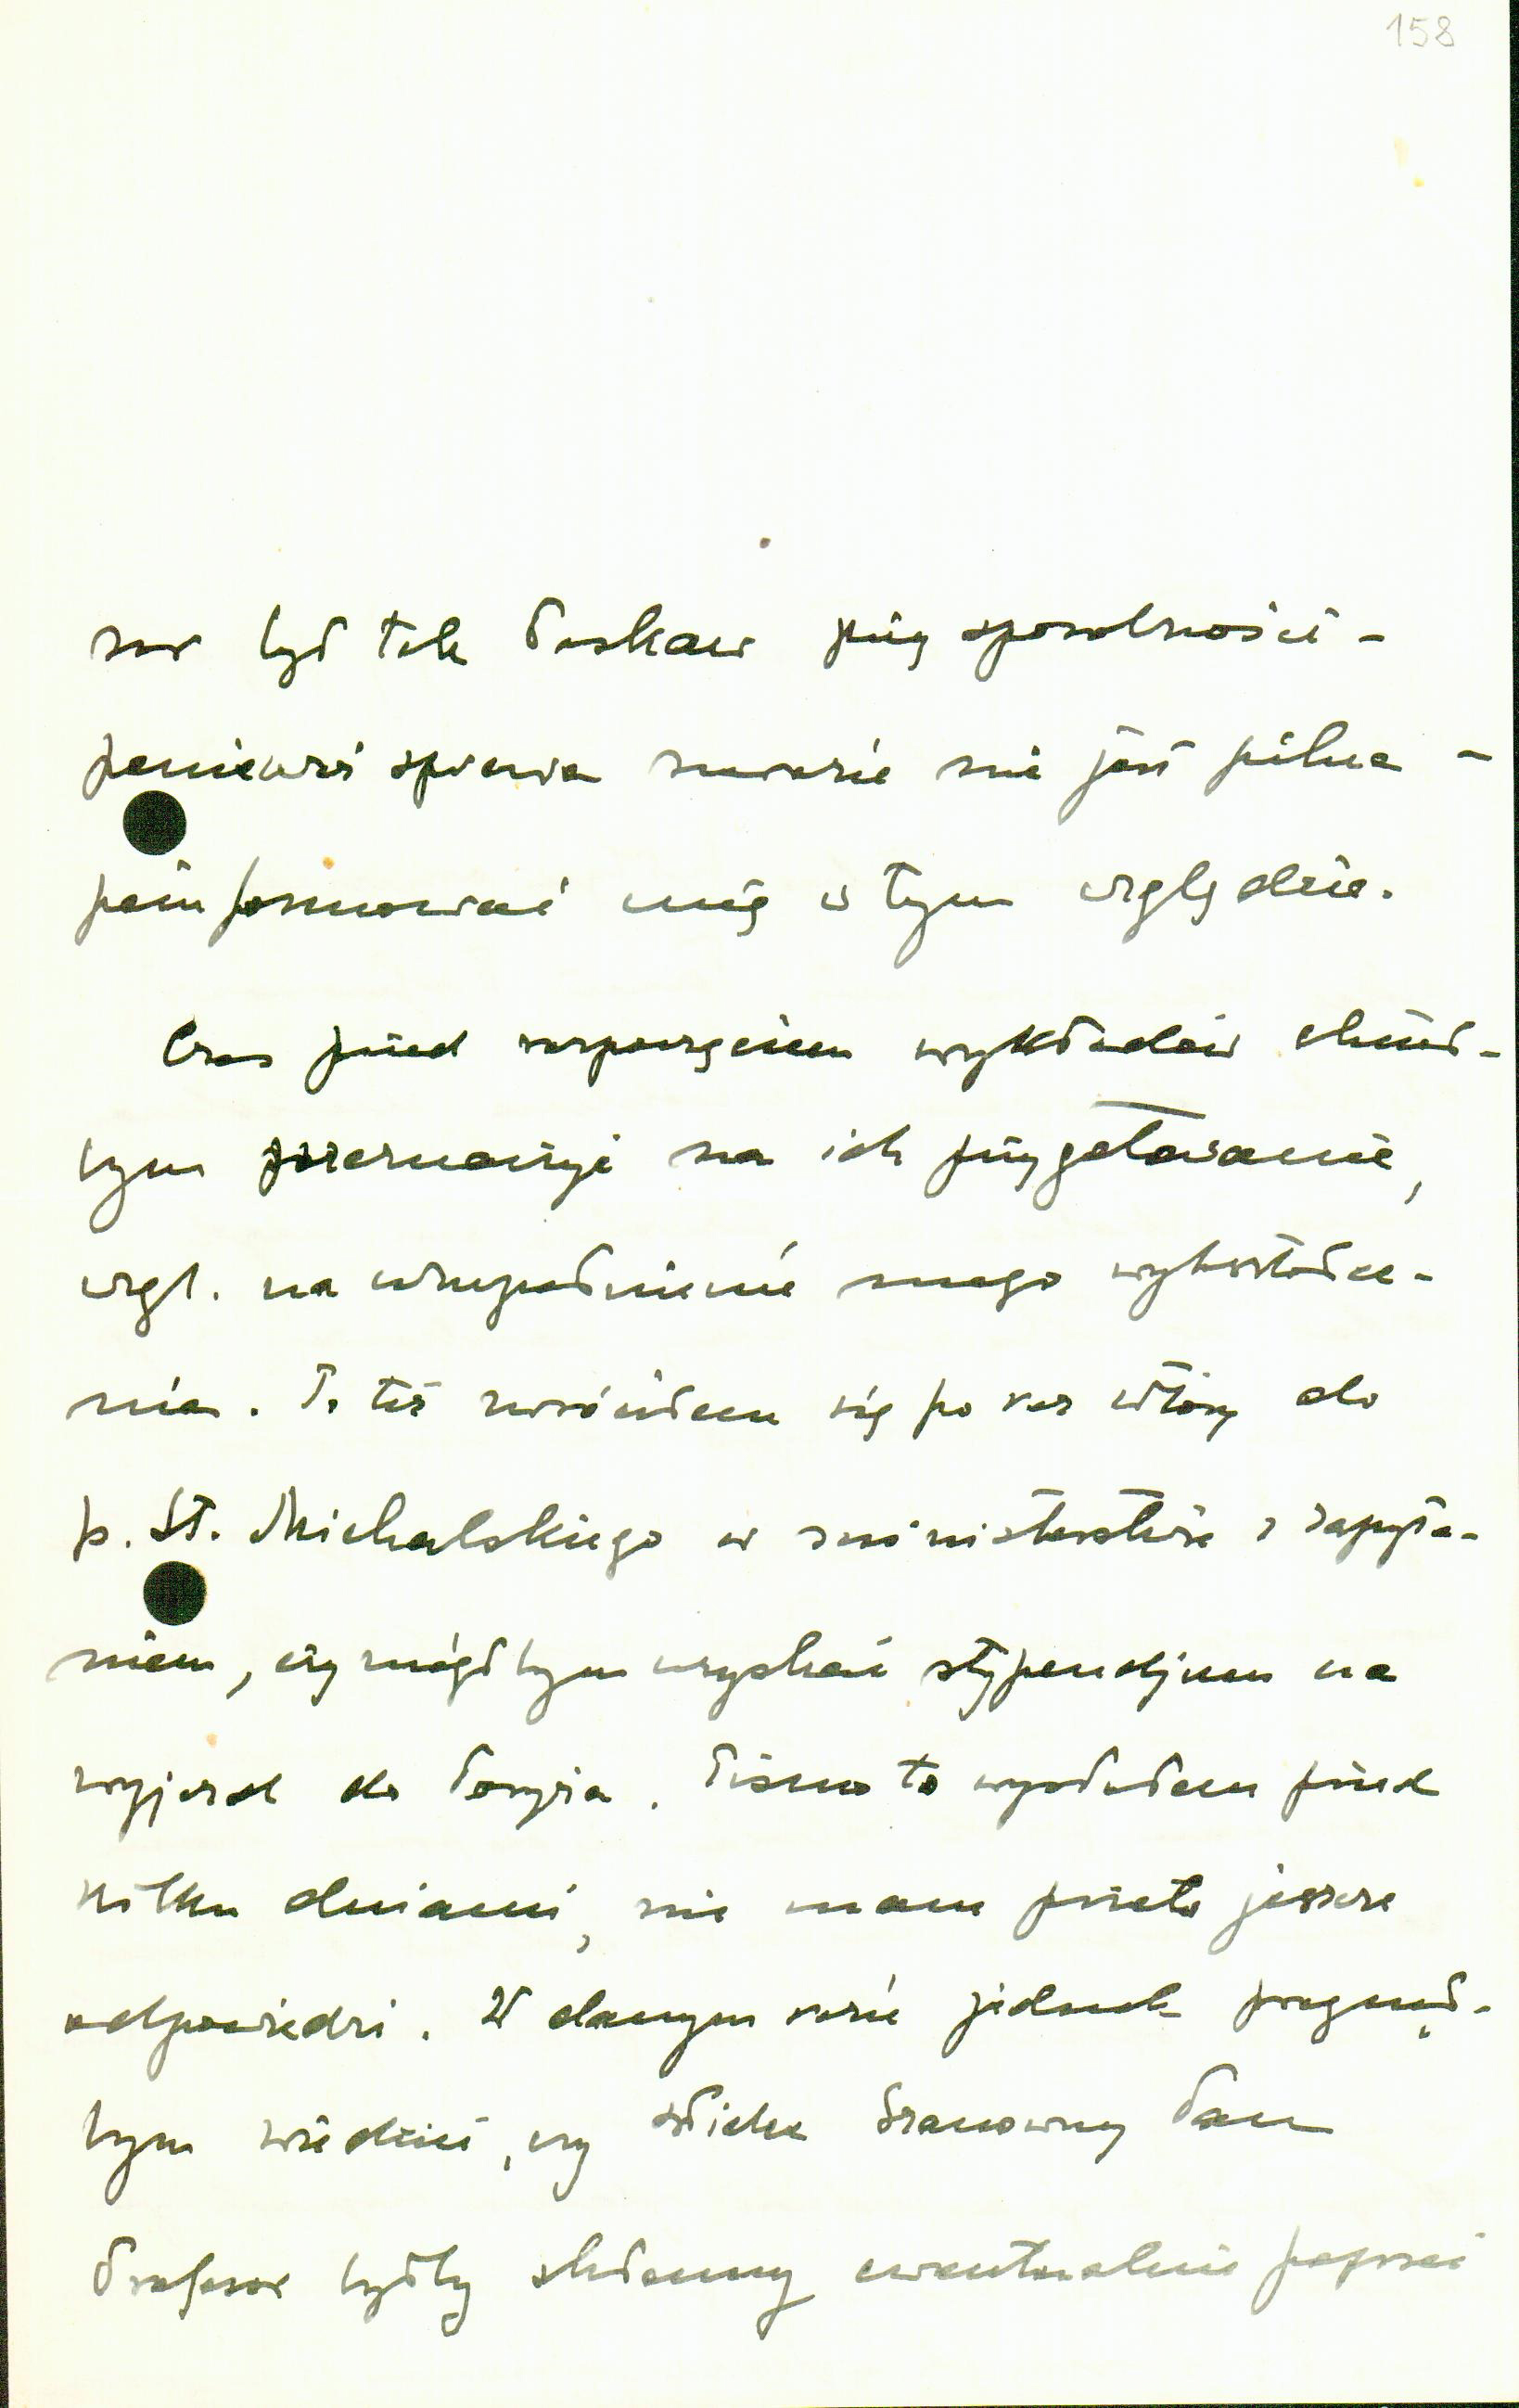 158
sor był tak łaskaw przy sposobności -
ponieważ sprawa narazie nie jest pilna -
poinformować mię w tym względzie.
Czas przed rozpoczęciem wykładów chciał-
bym przeznaczyć na ich przygotowanie,
wzgl. na uzupełnienie mego wykształce-
nia. To też zwróciłem się po raz wtóry do
p. St. Michalskiego w ministerstwie z zapyta-
niem, czy mógłbym uzyskać stypendjum na
wyjazd do Paryża. Pismo to wysłałem przed
kilku dniami, nie mam przeto jeszcze
odpowiedzi. W danym razie jednak pragnął-
bym wiedzieć, czy Wielce Szanowny Pan
Profesor byłby skłonny ewentualnie poprzeć